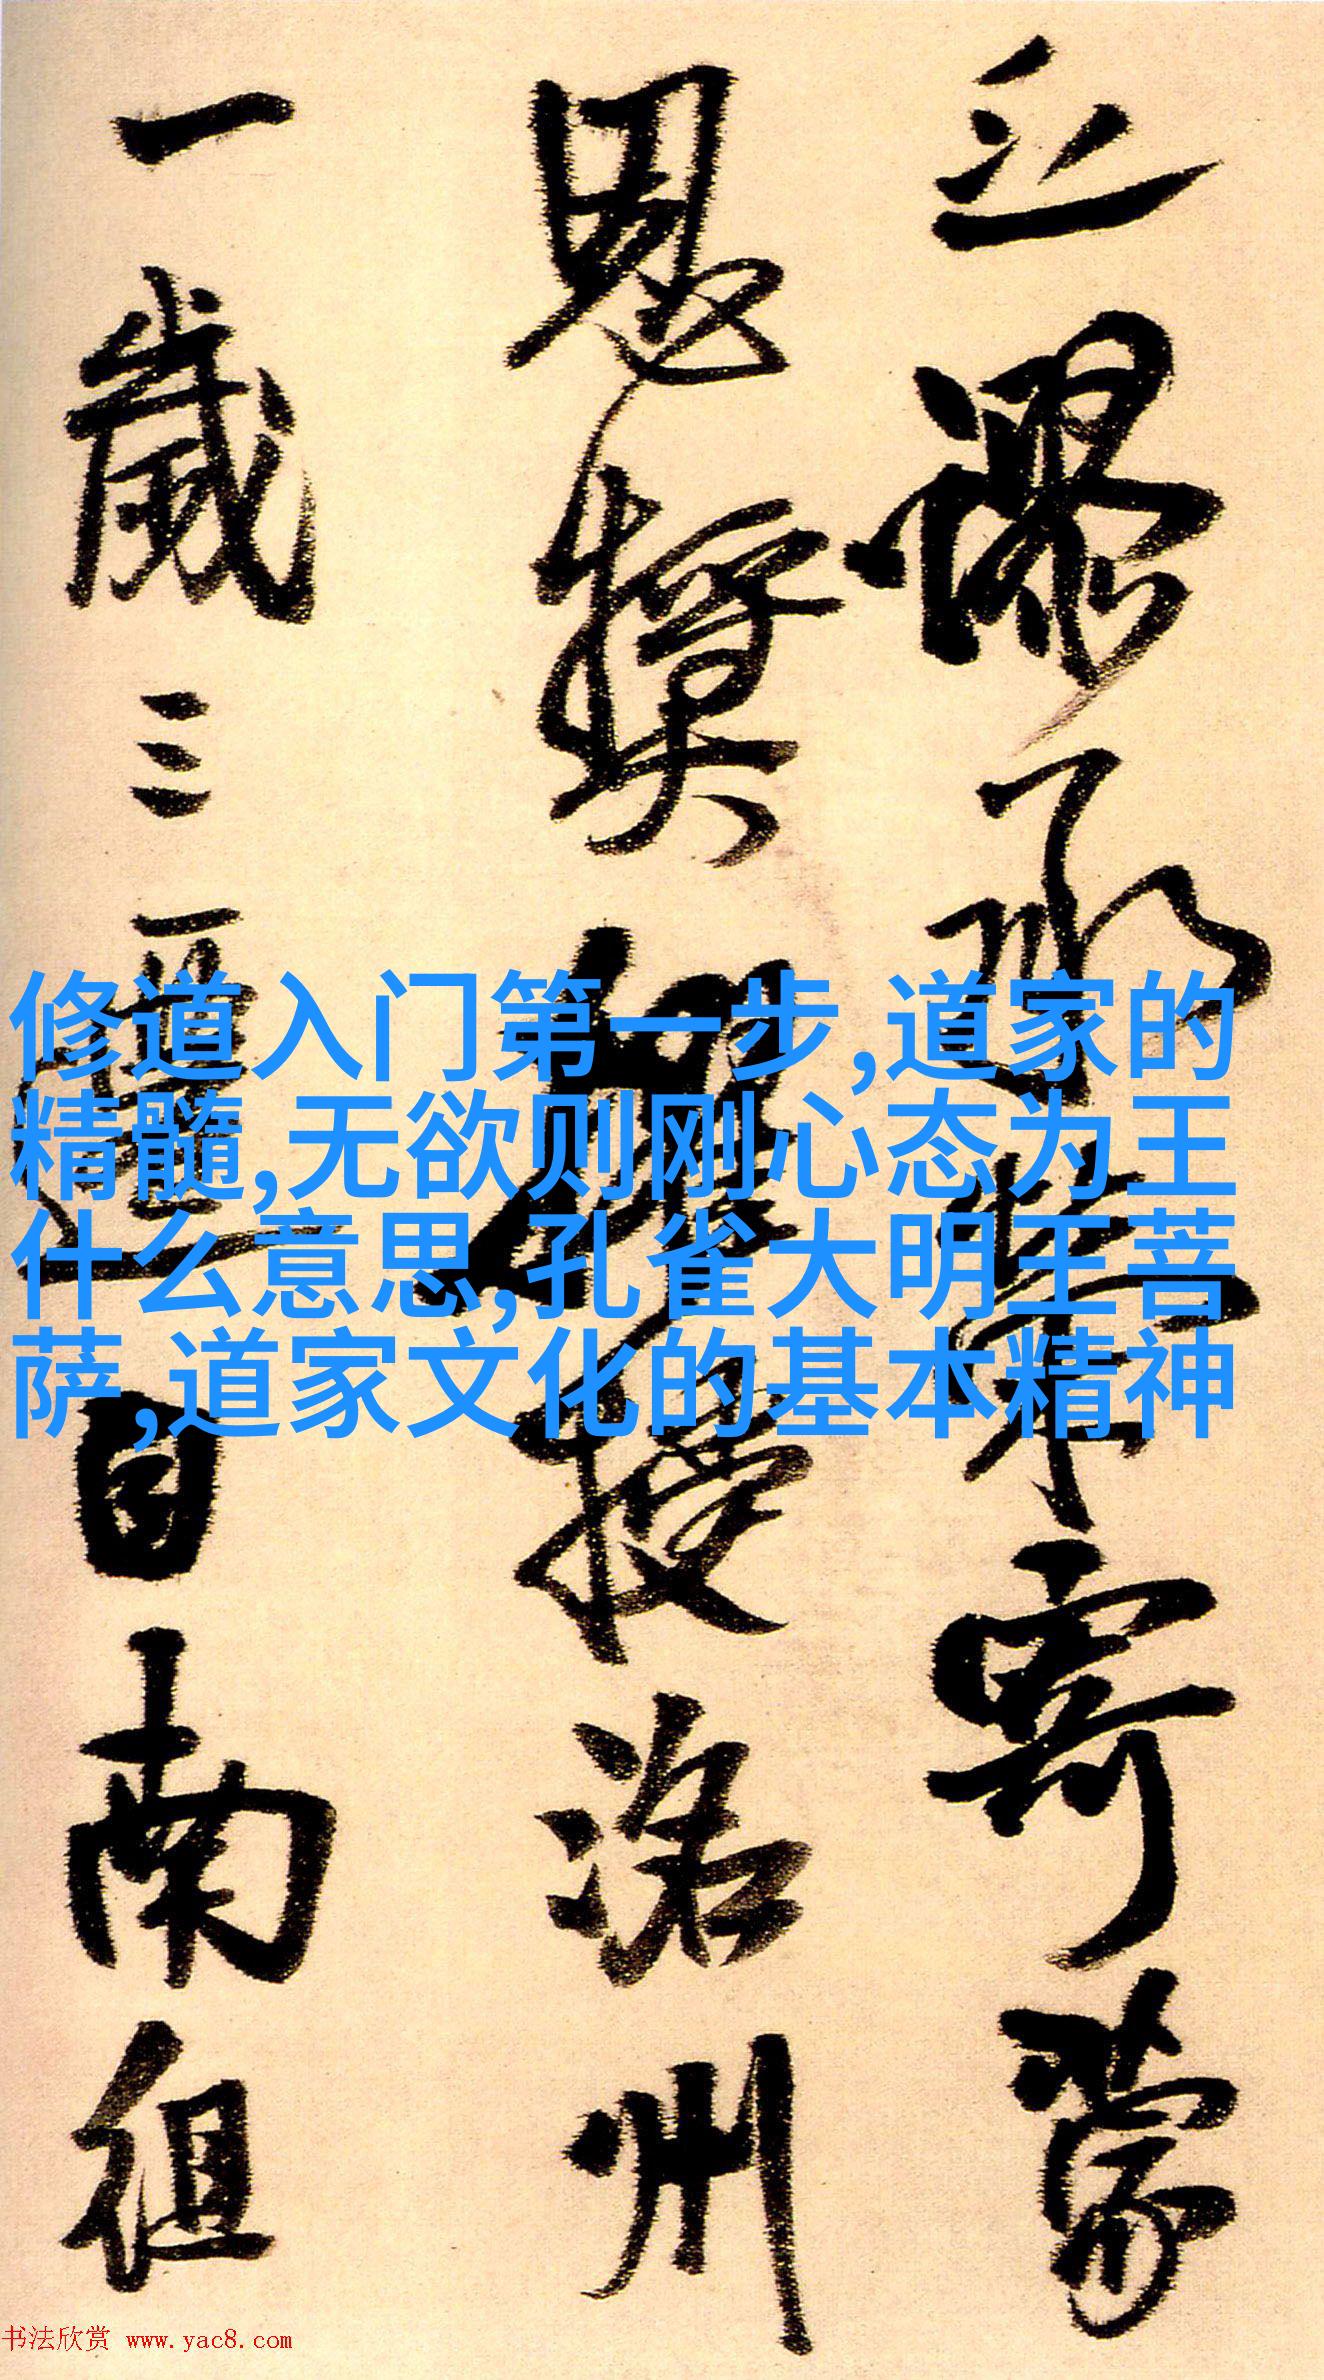 謬承榮寄蒙
恩獎擢授洛州
一歲三遷自南徂
修道入门第一步,道家的
精髓,无欲则刚心态为王
什么意思,孔雀大明王菩
萨,道家文化的基本精神
书法欣赏 www.yac8.com